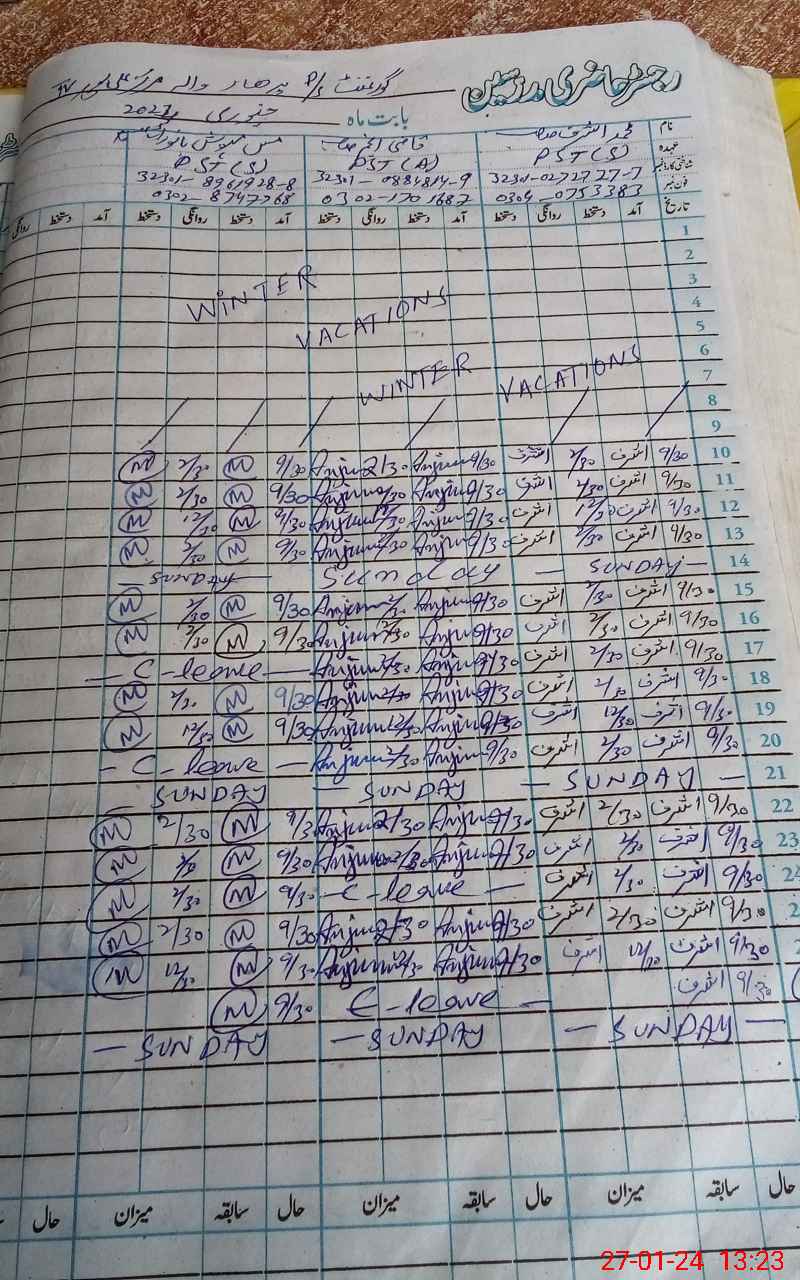 رجسٹر حاضری مدرسین
گورنمنٹ P/S
بابت ماہ جنوری
نام محمد اشرف صاحب
عہدہ PST (S) PST (A) PST (S)
32301-0272727-7 32301-0884814-9 32301-8961928-8
0304-0753383 0302-1701687 0302-8747768
تاریخ آمد دستخط روانگی دستخط آمد دستخط روانگی دستخط آمد دستخط روانگی دستخط آمد دستخط دستخط روانگی
1
2
3 WINTER
4 VACATIONS
5
6
7 WINTER VACATIONS
8
9
10 9/30 اشرف 2/30 اشرف 9/30 Anjum 2/30 Anjum 9/30 M 2/30 M
11 9/30 اشرف 2/30 اشرف 9/30 Anjum 2/30 Anjum 9/30 M 2/30 M
12 9/30 اشرف 12/30 اشرف 9/30 Anjum 12/30 Anjum 9/30 M 12/30 M
13 9/30 اشرف 2/30 اشرف 9/30 Anjum 2/30 Anjum 9/30 M 2/30 M
14 — SUNDAY — Sunday — SUNDAY —
15 9/30 اشرف 2/30 اشرف 9/30 Anjum 2/30 Anjum 9/30 M 2/30 M
16 9/30 اشرف 2/30 اشرف 9/30 Anjum 2/30 Anjum 9/30 M 2/30 M
17 9/30 اشرف 2/30 اشرف 9/30 Anjum 2/30 Anjum — C-leave —
18 9/30 اشرف 2/30 اشرف 9/30 Anjum 2/30 Anjum 9/30 M 2/30 M
19 9/30 اشرف 12/30 اشرف 9/30 Anjum 12/30 Anjum 9/30 M 12/30 M
20 9/30 اشرف 2/30 اشرف 9/30 Anjum 2/30 Anjum — C-leave —
21 — SUNDAY — SUNDAY — SUNDAY
22 9/30 اشرف 2/30 اشرف 9/30 Anjum 2/30 Anjum 9/30 M 2/30 M
23 9/30 اشرف 2/30 اشرف 9/30 Anjum 2/30 Anjum 9/30 M 2/30 M
9/30 اشرف 2/30 اشرف — C-leave — 9/30 M 2/30 M
9/30 اشرف 2/30 اشرف 9/30 Anjum 2/30 Anjum 9/30 M 2/30 M
9/30 اشرف 12/30 اشرف 9/30 Anjum 12/30 Anjum 9/30 M 12/30 M
9/30 اشرف C-leave — 9/30 M
— SUNDAY — — SUNDAY — SUNDAY
حال سابقہ میزان حال سابقہ میزان حال سابقہ میزان حال
27-01-24 13:23